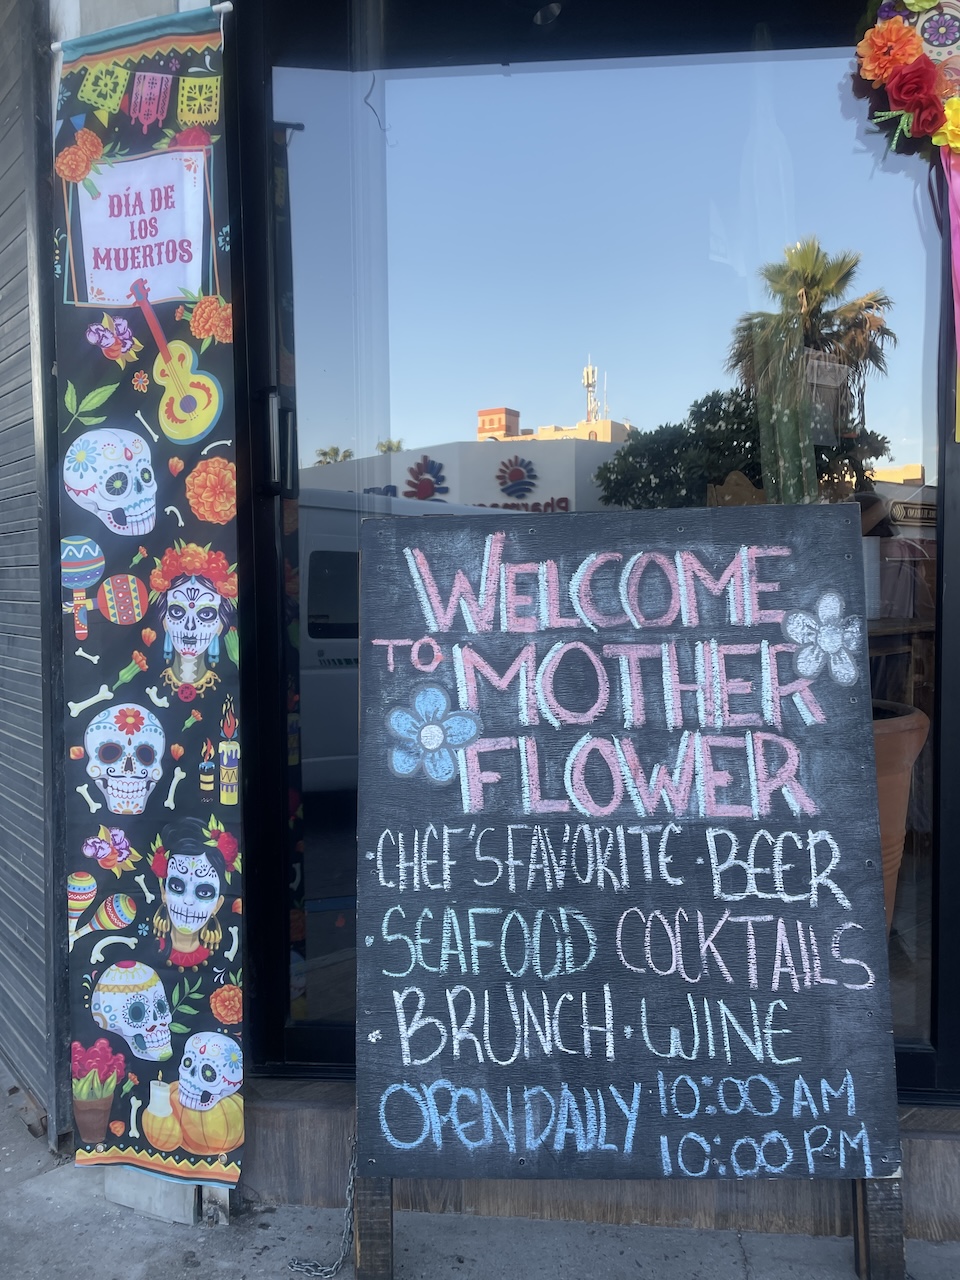 DÍA DE
LOS
MUERTOS
WELCOME
TO MOTHER
FLOWER
·CHEF'S FAVORITE ·BEER
·SEAFOOD COCKTAILS
·BRUNCH·WINE
OPEN DAILY 10:00 AM
10:00 PM